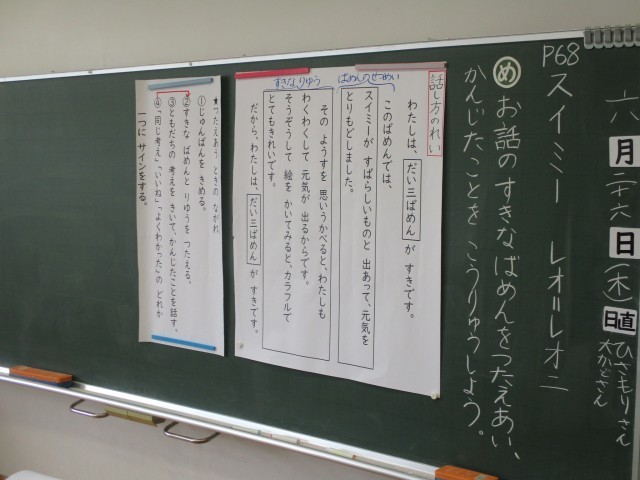 六月二十六日(木)
日直
ひさもりさん
大かどさん
P68
スイミー　レオ＝レオニ
め お話のすきなばめんをつたえあい、
かんじたことをこうりゅうしよう。
話し方のれい
わたしは、だい三ばめんが すきです。
ばめんのせつめい
このばめんでは、
スイミーが すばらしいものと 出あって、元気を
とりもどしました。
すきなりゆう
その ようすを 思いうかべると、わたしも
わくわくして 元気が 出るからです。
そうぞうして 絵を かいてみると、カラフルで
とてもきれいです。
だから、わたしは、だい三ばめんが すきです。
★つたえあう ときの ながれ
①じゅんばんを きめる。
②すきな ばめんと りゆうを つたえる。
③ともだちの 考えを きいて、かんじたことを話す。
④「同じ考え」「いいね」「よくわかった」の どれか
一つに サインをする。